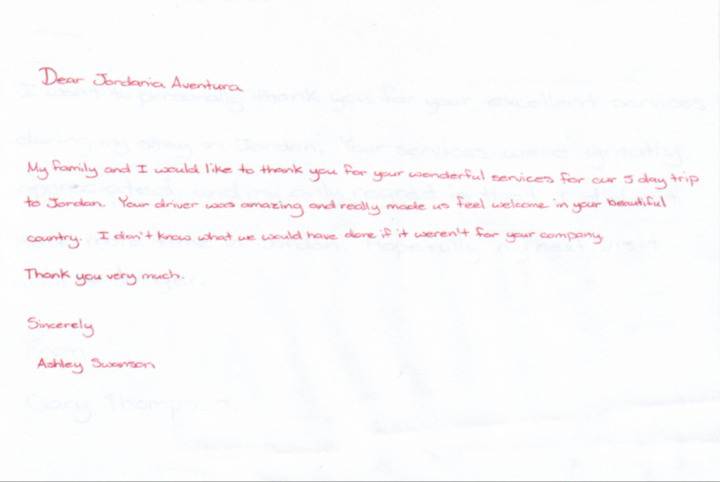 Dear Jordania Aventura
My family and I would like to thank you for your wonderful services for our 5 day trip
to Jordan. Your driver was amazing and really made us feel welcome in your beautiful
country. I don't know what we would have done if it weren't for your company
Thank you very much.
Sincerely
Ashley Swanson